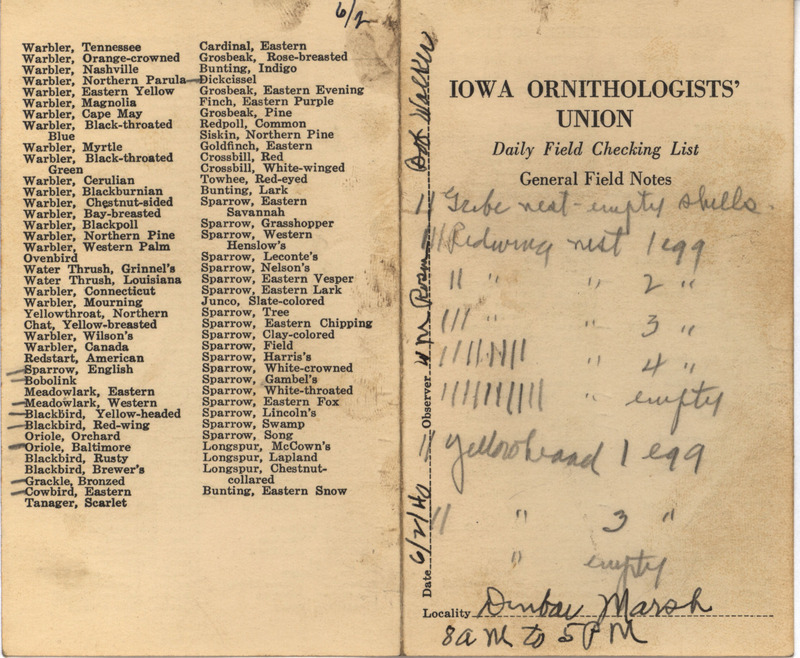 6/2
Warbler, Tennessee
Warbler, Orange-crowned
Warbler, Nashville
Warbler, Northern Parula
Warbler, Eastern Yellow
Warbler, Magnolia
Warbler, Cape May
Warbler, Black-throated
Blue
Warbler, Myrtle
Warbler, Black-throated
Green
Warbler, Cerulian
Warbler, Blackburnian
Warbler, Chestnut-sided
Warbler, Bay-breasted
Warbler, Blackpoll
Warbler, Northern Pine
Warbler, Western Palm
Ovenbird
Water Thrush, Grinnel's
Water Thrush, Louisiana
Warbler, Connecticut
Warbler, Mourning
Yellowthroat, Northern
Chat, Yellow-breasted
Warbler, Wilson's
Warbler, Canada
Redstart, American
Sparrow, English
Bobolink
Meadowlark, Eastern
Meadowlark, Western
Blackbird, Yellow-headed
Blackbird, Red-wing
Oriole, Orchard
Oriole, Baltimore
Blackbird, Rusty
Blackbird, Brewer's
Grackle, Bronzed
Cowbird, Eastern
Tanager, Scarlet
Cardinal, Eastern
Grosbeak, Rose-breasted
Bunting, Indigo
Dickcissel
Grosbeak, Eastern Evening
Finch, Eastern Purple
Grosbeak, Pine
Redpoll, Common
Siskin, Northern Pine
Goldfinch, Eastern
Crossbill, Red
Crossbill, White-winged
Towhee, Red-eyed
Bunting, Lark
Sparrow, Eastern
Savannah
Sparrow, Grasshopper
Sparrow, Western
Henslow's
Sparrow, Leconte's
Sparrow, Nelson's
Sparrow, Eastern Vesper
Sparrow, Eastern Lark
Junco, Slate-colored
Sparrow, Tree
Sparrow, Eastern Chipping
Sparrow, Clay-colored
Sparrow, Field
Sparrow, Harris's
Sparrow, White-crowned
Sparrow, Gambel's
Sparrow, White-throated
Sparrow, Eastern Fox
Sparrow, Lincoln's
Sparrow, Swamp
Sparrow, Song
Longspur, McCown's
Longspur, Lapland
Longspur, Chestnut-
collared
Bunting, Eastern Snow
IOWA ORNITHOLOGISTS'
UNION
Daily Field Checking List
General Field Notes
11 Grebe nest - empty shells.
11 Redwing nest 1 egg
11 " " 2 "
111 " " 3 "
11111111 " 4 "
1111111111 " empty
11 Yellowheaad 1 egg
11 " 3 "
" empty
Date 6/2/40 Observer W M Rosen Walker
Locality Dunbar Marsh
8 a M to 5 P M